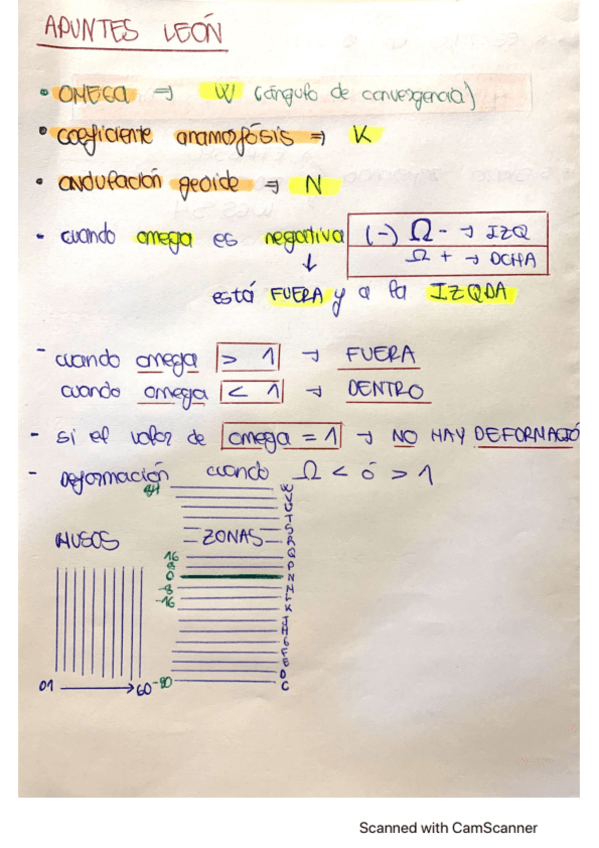 APUNTES LEÓN
• OMEGA ⇒ W (ángulo de convergencia)
• coeficiente anamorfósis ⇒ K
• ondulación geoide ⇒ N
- cuando omega es negativa (-) Ω - → IZQ
Ω + → DCHA
↓
está FUERA y a la IZQDA
- cuando omega > 1 → FUERA
cuando omega < 1 → DENTRO
- si el valor de omega = 1 → NO HAY DEFORMACIÓ
- deformación cuando Ω < ó > 1
84
HUSOS
ZONAS
16
8
0
-8
-16
-80
W
V
U
T
S
R
Q
P
N
M
L
K
J
H
G
F
E
D
C
01 → 60
Scanned with CamScanner